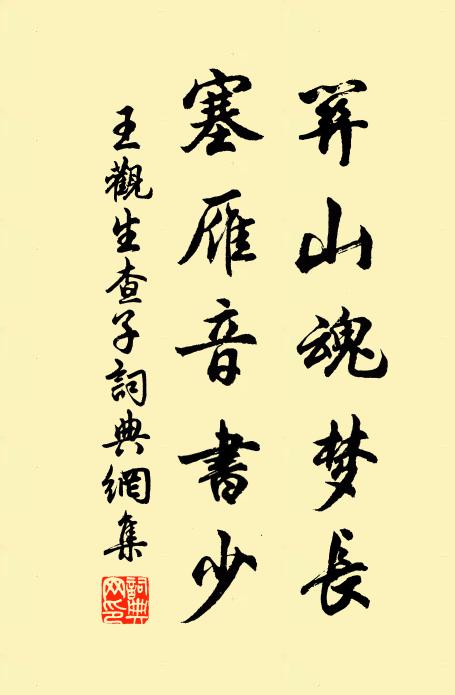 關山魂梦長
塞雁音書少
王觀生查子詞典網集
詞典
网印